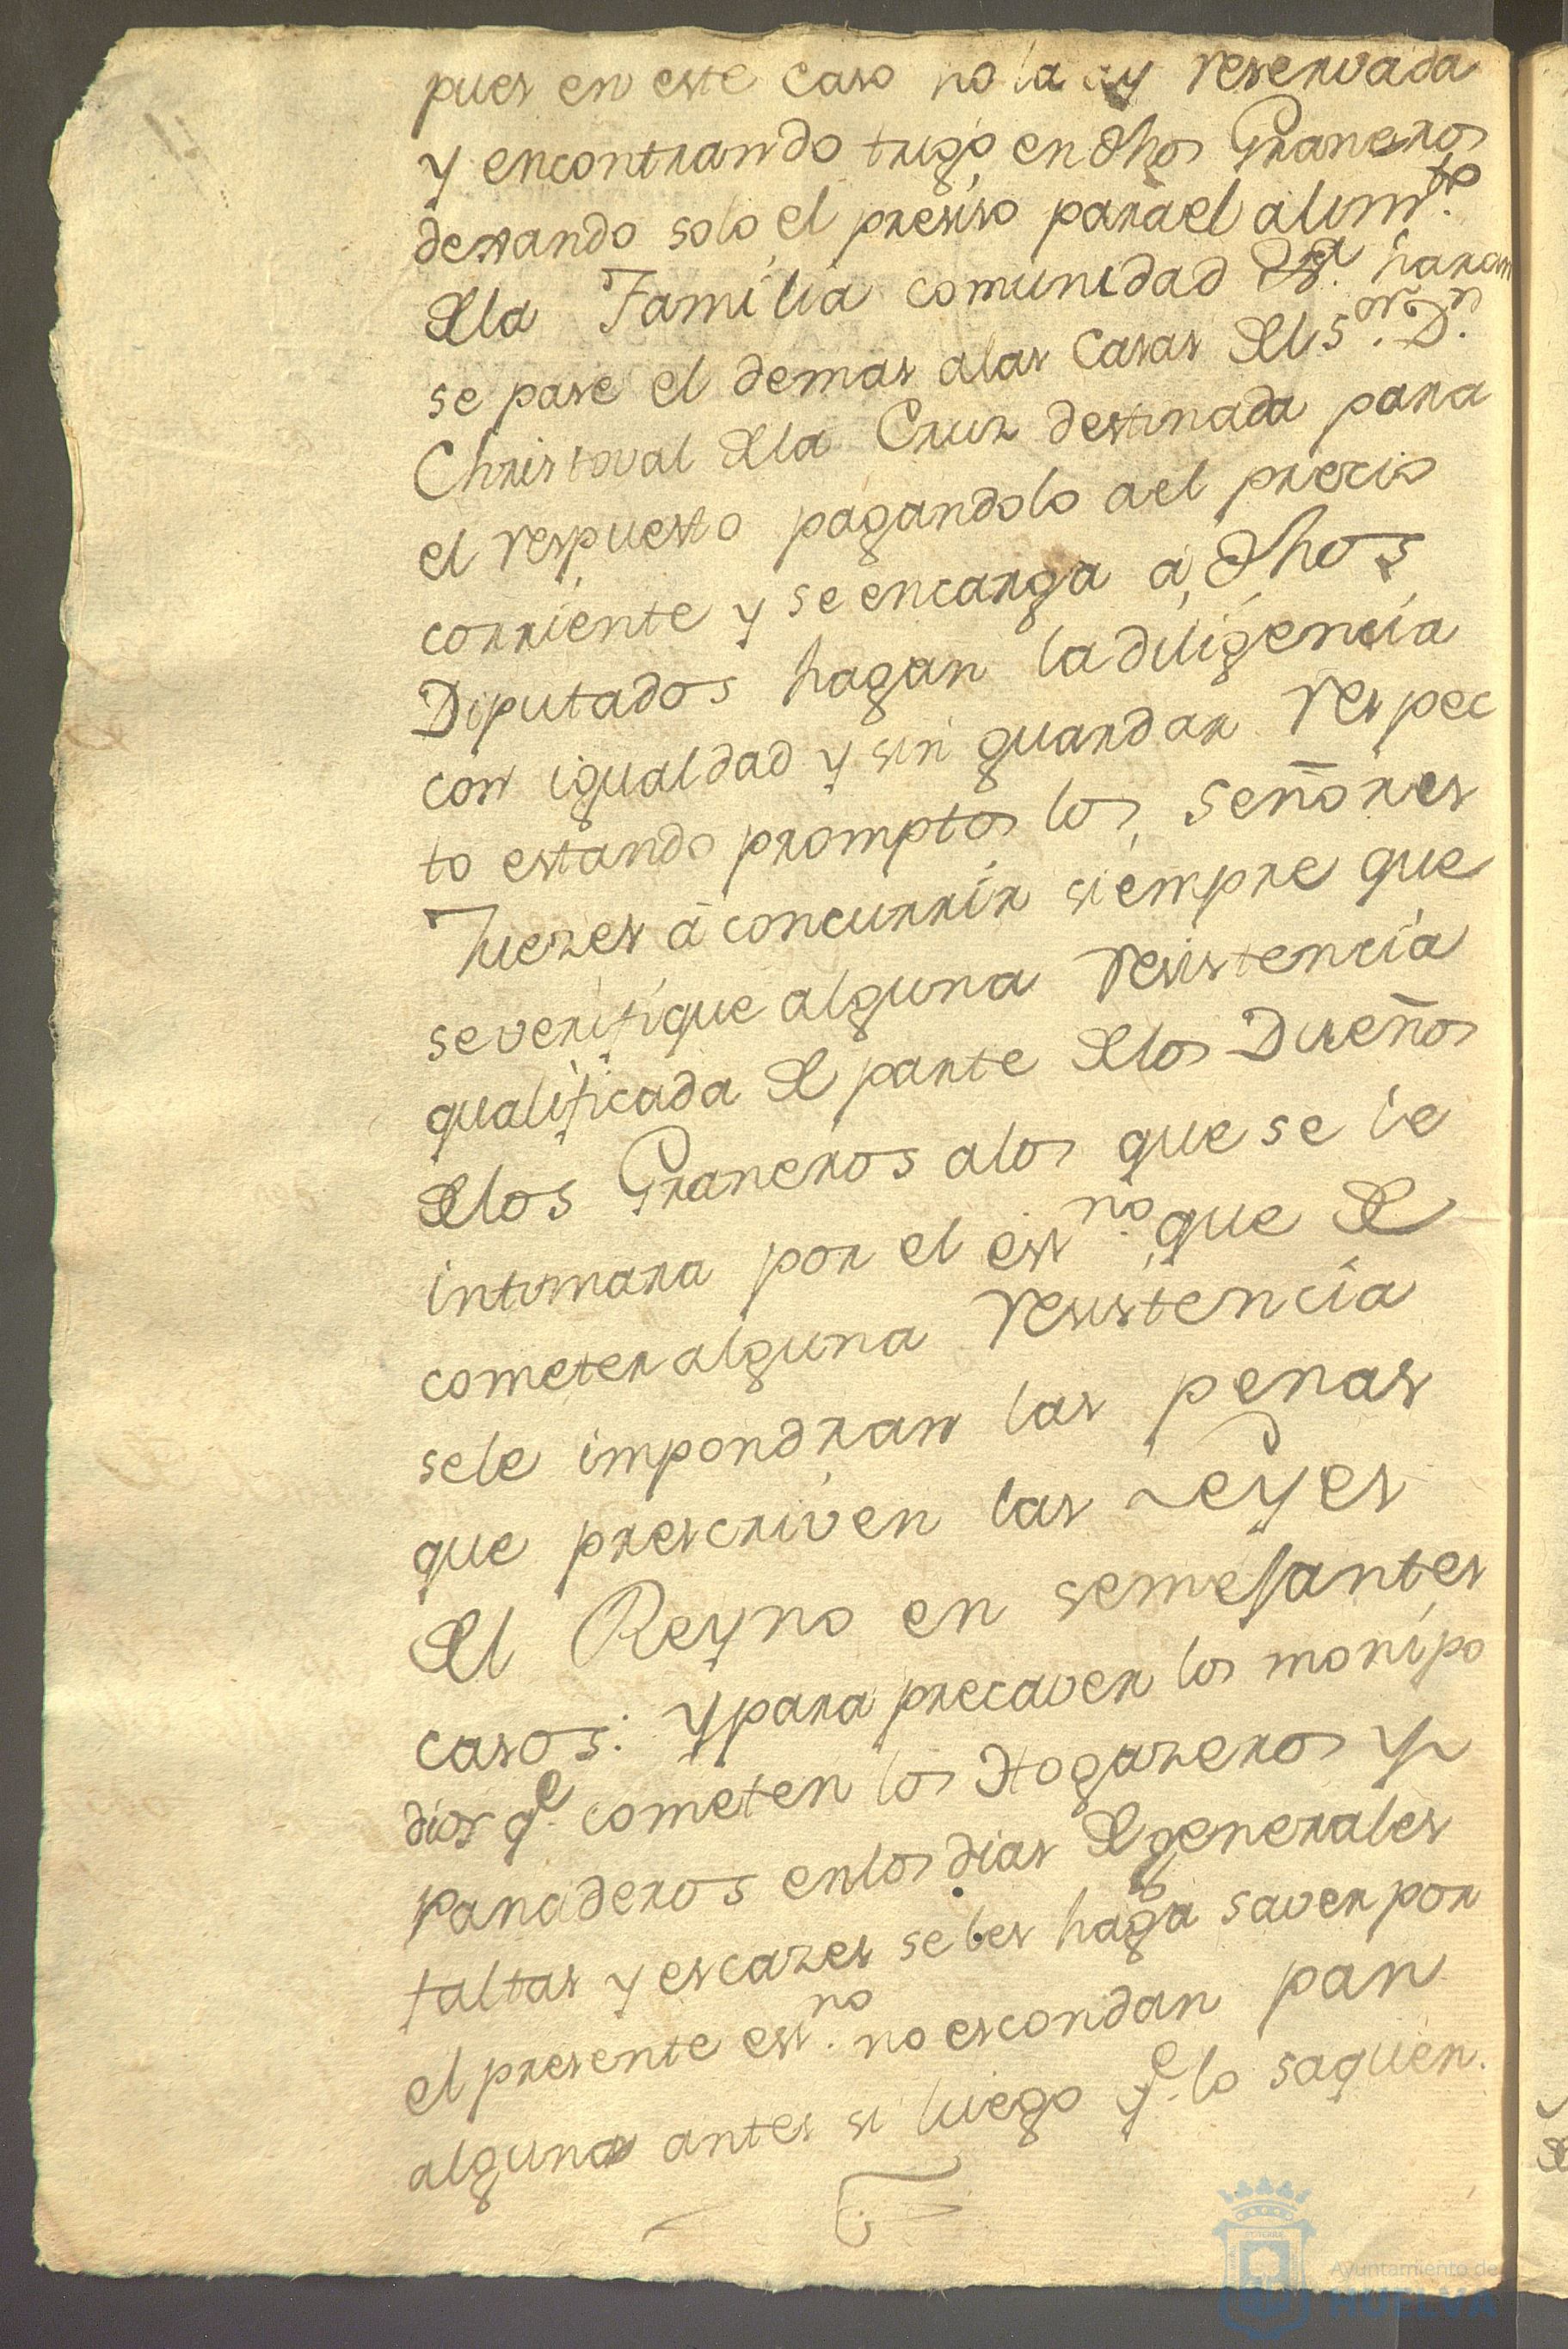 pues en este caso no la ay reservada
y encontrando trigo en dhos Graneros
dexando solo el presiso para el alimto.
dela Familia comunidad &a. haran
se pase el demas alas Casas del Sor. Dn.
Christoval dela Cruz destinada para
el respuesto pagandolo a el precio
corriente y se encarga á dhos
Diputados hagan la diligencia
con igualdad y sin guardar respec
to estando promptos los señores
Juezes á concurrir siempre que
se verifique alguna resistencia
qualificada de parte delos Dueños
delos Graneros alos que se le
intimara por el essno. que de
cometer alguna resistencia
sele impondran las penas
que prescriven las Leyes
del Reyno en semejantes
casos: y para precaver los monipo
dios qe. cometen los Hogazeros y
Panaderos enlos dias de generales
faltas y escazes se les haga saver por
el presente essno. no escondan pan
alguno antes si luego qe. lo saquen.
Ayuntamiento de
HUELVA